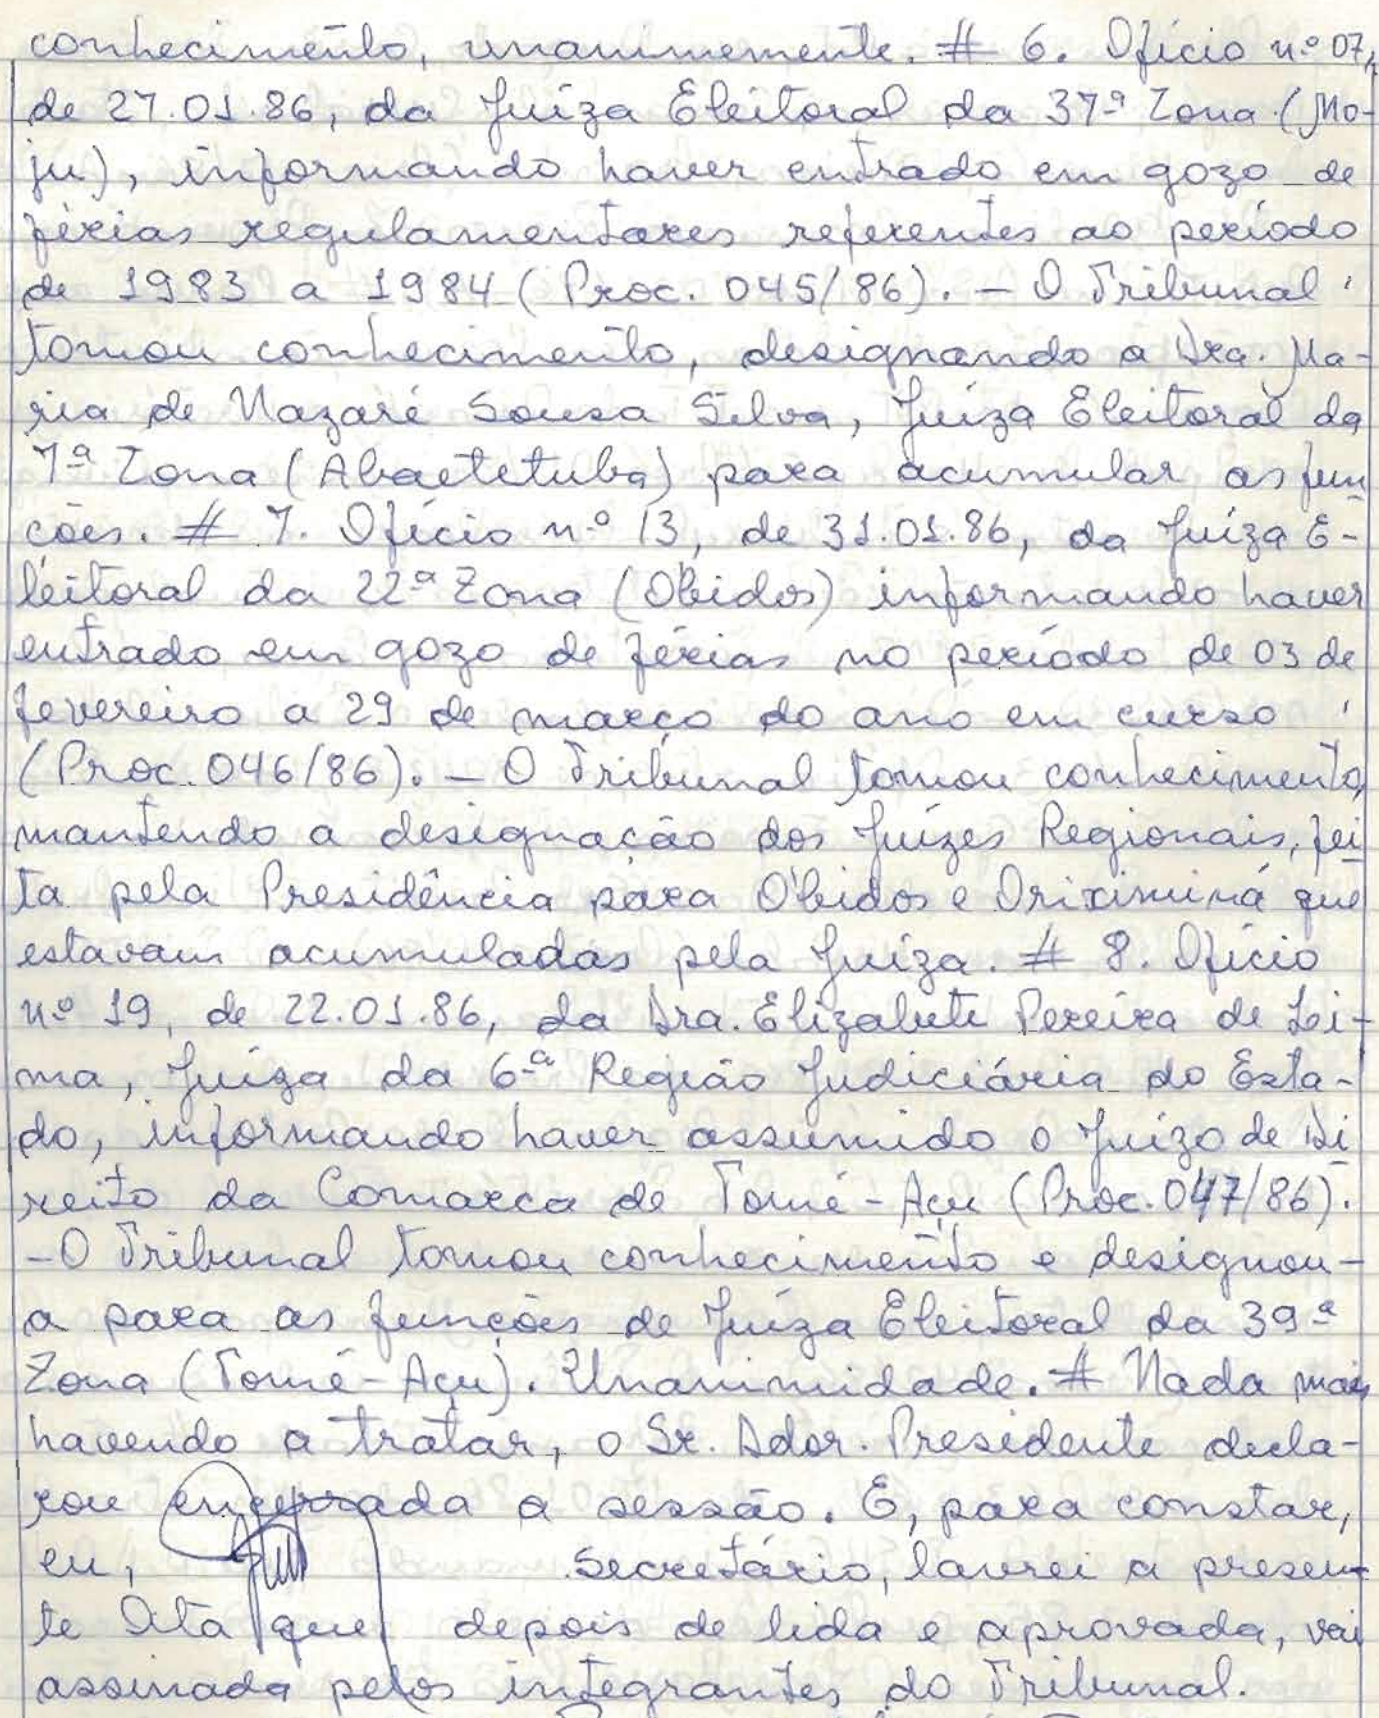 conhecimento, unanimemente. # 6. Ofício n.º 07,
de 27.01.86, da Juíza Eleitoral da 37ª Zona (Mo-
ju), informando haver entrado em gozo de
férias regulamentares referentes ao período
de 1983 a 1984 (Proc. 045/86). - O Tribunal '
tomou conhecimento, designando a Dra. Ma-
ria de Nazaré Sousa Silva, Juíza Eleitoral da
7ª Zona (Abaetetuba) para acumular as fun
ções. # 7. Ofício n.º 13, de 31.01.86, da Juíza E-
leitoral da 22ª Zona (Óbidos) informando haver
entrado em gozo de férias no período de 03 de
fevereiro a 29 de março do ano em curso '
(Proc. 046/86). - O Tribunal tomou conhecimento,
mantendo a designação dos Juízes Regionais, fei
ta pela Presidência para Óbidos e Oriximiná que
estavam acumuladas pela Juíza. # 8. Ofício
nº 19, de 22.01.86, da Dra. Elizabete Pereira de Lei-
ma, Juíza da 6ª Região Judiciária do Esta-
do, informando haver assumido o Juízo de Di
reito da Comarca de Tomé-Açu (Proc. 047/86).
- O Tribunal tomou conhecimento e designou-
a para as funções de Juíza Eleitoral da 39ª
Zona (Tomé-Açu). Unanimidade. # Nada mais
havendo a tratar, o Sr. Ddor. Presidente decla-
rou encerrada a sessão. E, para constar,
eu, Secretário, lavrei a presen-
te Ata que depois de lida e aprovada, vai
assinada pelos integrantes do Tribunal.